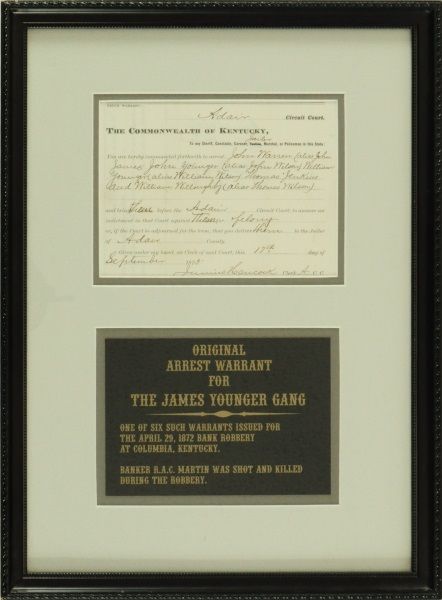 BENCH WARRANT.
Adair Circuit Court.
THE COMMONWEALTH OF KENTUCKY,
To any Sheriff, Constable, Coroner, Jailer, Marshal, or Policeman in this State:
You are hereby commanded forthwith to arrest John Warren (alias John
James John Younger (alias John Wilson) William
Younger (alias William Wilson) Thomas Jenkins
and William Willoughby (alias Thomas Wilson)
and bring Them before the Adair Circuit Court, to answer an
indictment in that Court against Them felony
or, if the Court is adjourned for the term, that you deliver Them to the Jailer
of Adair County.
Given under my hand, as Clerk of said Court, this 17th day of
September
Junius Hancock Clerk A. C. C.
ORIGINAL
ARREST WARRANT
FOR
THE JAMES YOUNGER GANG
ONE OF SIX SUCH WARRANTS ISSUED FOR
THE APRIL 29, 1872 BANK ROBBERY
AT COLUMBIA, KENTUCKY.
BANKER R.A.C. MARTIN WAS SHOT AND KILLED
DURING THE ROBBERY.